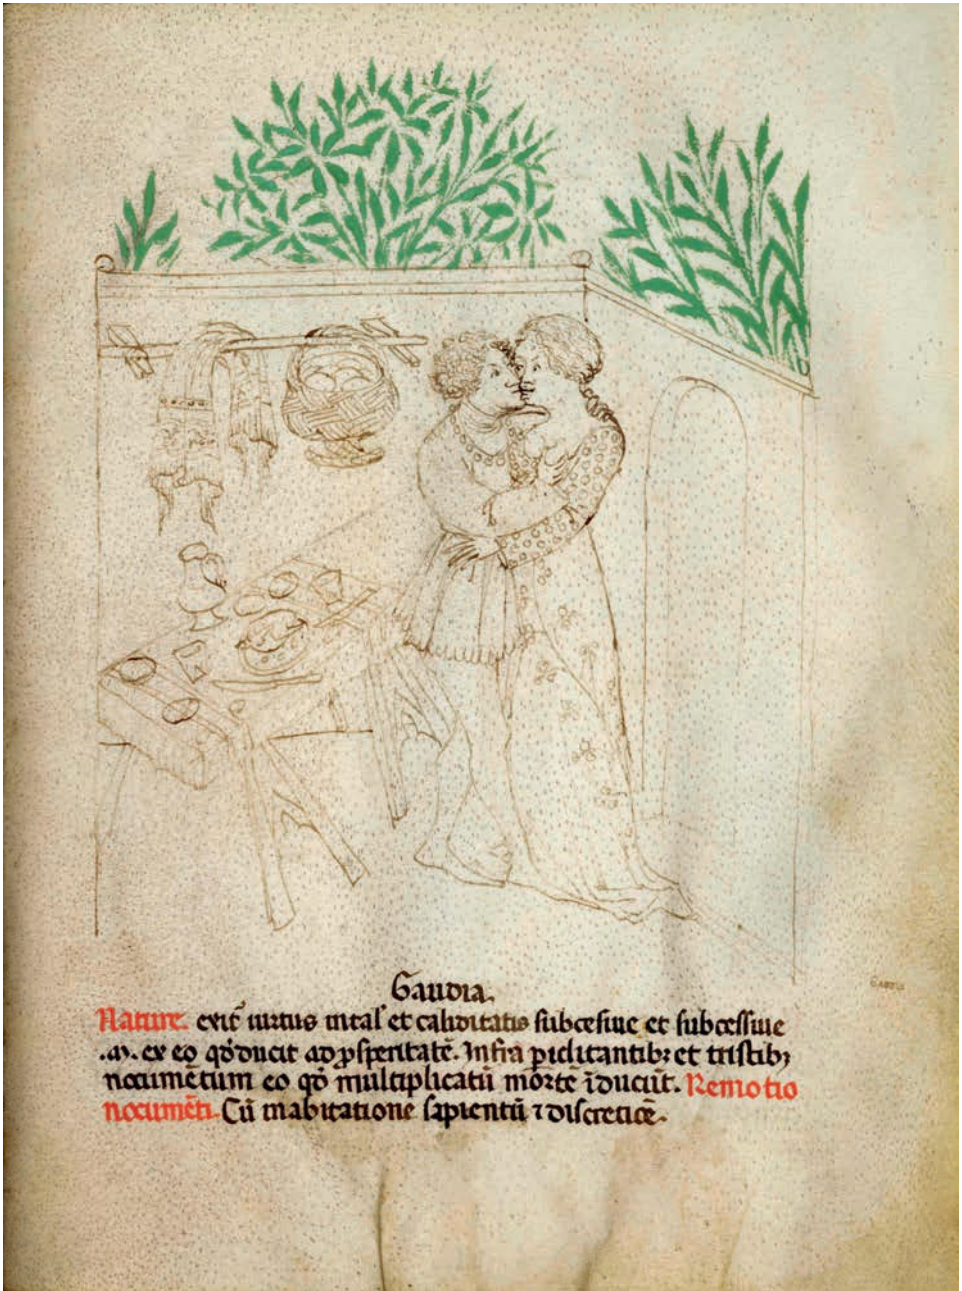 Gaudia.
Nature. exit uirtus uital' et caliditatis subcesiue et subcessiue
.a. ex eo qd ducit ad ꝓsperitatē. Infra piclitantibꝫ et tristibꝫ
nocumētum eo qd multiplicatū mōrtē īducūt. Remotio
nocumēti. Cū inabitatione sapientū ⁊ discreticē.